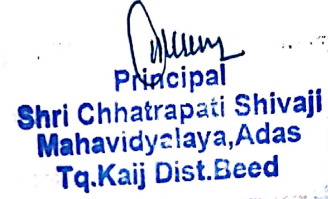 Principal
Shri Chhatrapati Shivaji
Mahavidyalaya,Adas
Tq.Kaij Dist.Beed